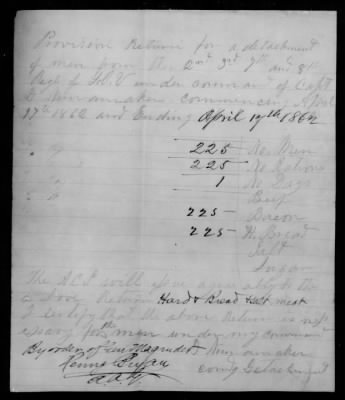 Provision Return for a detachment
of men from the 2nd 3rd 7th and 8th
Regt of Fl. V under command of Capt
commencing April
17th 1862 and Ending April 17th 1862
225 No Men
225 No Rations
1 No Days
Beef
225 Bacon
225 H. Bread
Salt
Sugar
The ACS will issue agreeably to the
above Return Hard Bread & salt meat
I certify that the above Return is nec
essary for the men under my command
By order of Gen Magruder
Henry Bryan
A.A.G.
comdg Detachment